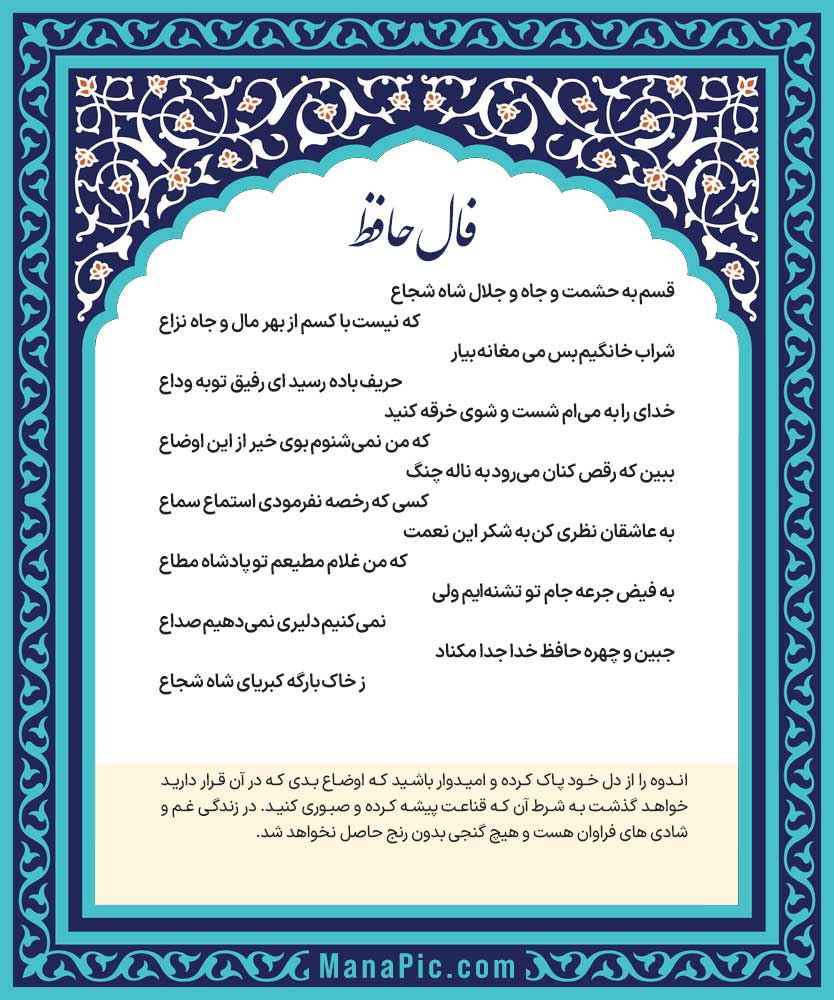 فال حافظ
قسم به حشمت و جاه و جلال شاه شجاع
که نیست با کسم از بهر مال و جاه نزاع
شراب خانگیم بس می مغانه بیار
حریف باده رسید ای رفیق توبه وداع
خدای را به می‌ام شست و شوی خرقه کنید
که من نمی‌شنوم بوی خیر از این اوضاع
ببین که رقص کنان می‌رود به ناله چنگ
کسی که رخصه نفرمودی استماع سماع
به عاشقان نظری کن به شکر این نعمت
که من غلام مطیعم تو پادشاه مطاع
به فیض جرعه جام تو تشنه‌ایم ولی
نمی‌کنیم دلیری نمی‌دهیم صداع
جبین و چهره حافظ خدا جدا مکناد
ز خاک بارگه کبریای شاه شجاع
اندوه را از دل خود پاک کرده و امیدوار باشید که اوضاع بدی که در آن قرار دارید
خواهد گذشت به شرط آن که قناعت پیشه کرده و صبوری کنید. در زندگی غم و
شادی های فراوان هست و هیچ گنجی بدون رنج حاصل نخواهد شد.
ManaPic.com